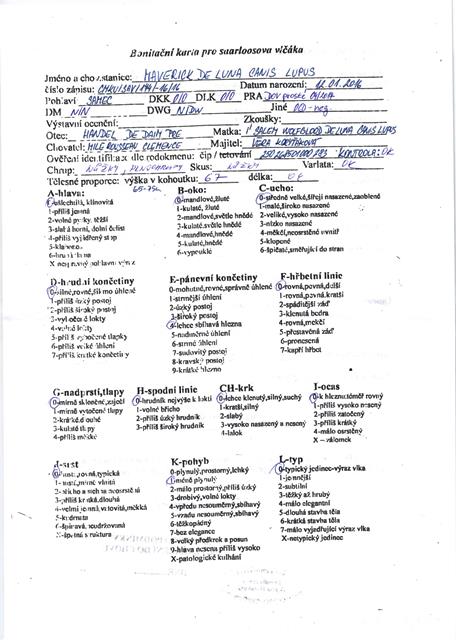 Bonitační karta pro saarloosova vlčáka
Jméno a chov.stanice: MAVERICK DE LUNA CANIS LUPUS
číslo zápisu: Datum narození: 12.01.2016
Pohlaví SAMEC DKK 0/0 DLK 0/0 PRA
DM N/N DWG N/DW Jiné
Výstavní ocenění: Zkoušky:
Otec: HANDEL DE Matka: DE LUNA CANIS LUPUS
Chovatel: CLEMENCE Majitel: VERA
Ověření identifikace dle rodokmenu: čip / tetování KONTROLA: OK
Chrup: NŮŽKY, Skus: NŮŽKY Varlata: OK
Tělesné proporce: výška v kohoutku: 67 délka: OK
A-hlava:
0-ušlechtilá, klínovitá
1-příliš jemná
2-volné pysky, těžší
3-slabá horní, dolní čelist
4-příliš vyjádřený stop
B-oko:
0-mandlové,žluté
1-kulaté, žluté
2-mandlové,světle hnědé
3-kulaté,světle hnědé
4-mandlové,hnědé
5-kulaté,hnědé
6-vypouklé
C-ucho:
0-středně velké,šířeji nasazené,zaoblené
1-malé,široko nasazené
2-veliké,vysoko nasazené
3-nízko nasazené
4-měkčí,neotevřené uvnitř
5-klopené
6-špičaté,směřující do stran
D-hrudní končetiny
1-příliš úzký postoj
2-příliš široký postoj
3-vytočené lokty
4-volné lokty
5-příliš vytočené tlapky
6-příliš velké úhlení
7-příliš krátké končetiny
E-pánevní končetiny
0-mohutné,rovné,správně úhlené
1-strmější úhlení
2-úzký postoj
3-široký postoj
4-lehce sbíhavá hlezna
5-nadměrné úhlení
6-strmé úhlení
7-sudovitý postoj
8-kravský postoj
9-krátké hlezno
F-hřbetní linie
0-rovná,pevná,delší
1-rovná,pevná,kratší
2-spáditější záď
3-klenutá bedra
4-rovná,měkčí
5-přestavěná záď
6-pronesená
7-kapří hřbet
G-nadprstí,tlapy
1-mírně vytočené tlapy
2-krátké,dlouhé
3-kulaté tlapy
4-příliš měkké
H-spodní linie
0-hrudník nejvýše k lokti
1-volné břicho
2-příliš úzký hrudník
3-příliš široký hrudník
CH-krk
0-lehce klenutý,silný,suchý
1-kratší,silný
2-slabý
3-vysoko nasazený a nesený
4-lalok
I-ocas
0-k hleznu,téměř rovný
1-příliš vysoko nesený
2-příliš zatočený
3-příliš krátký
4-málo osrstěný
X – zálomek
J-srst
0-hustá,rovná,typická
3-příliš krátká,dlouhá
4-velmi jemná,vlnovitá,měkká
5-kudrnatá
X-špatná struktura
K-pohyb
0-plynulý,prostorný,lehký
1-méně plynulý
2-málo prostorný,příliš úzký
3-drobivý,volné lokty
4-vpředu nesouměrný,sbíhavý
5-vzadu nesouměrný,sbíhavý
6-těžkopádný
7-bez elegance
8-velký předkrok a posun
9-hlava nesena příliš vysoko
X-patologické kulhání
L-typ
0-typický jedinec-výraz vlka
1-jemnější
2-subtilní
3-těžký až hrubý
4-málo elegantní
5-dlouhá stavba těla
6-krátká stavba těla
7-málo vyjadřující výraz vlka
X-netypický jedinec